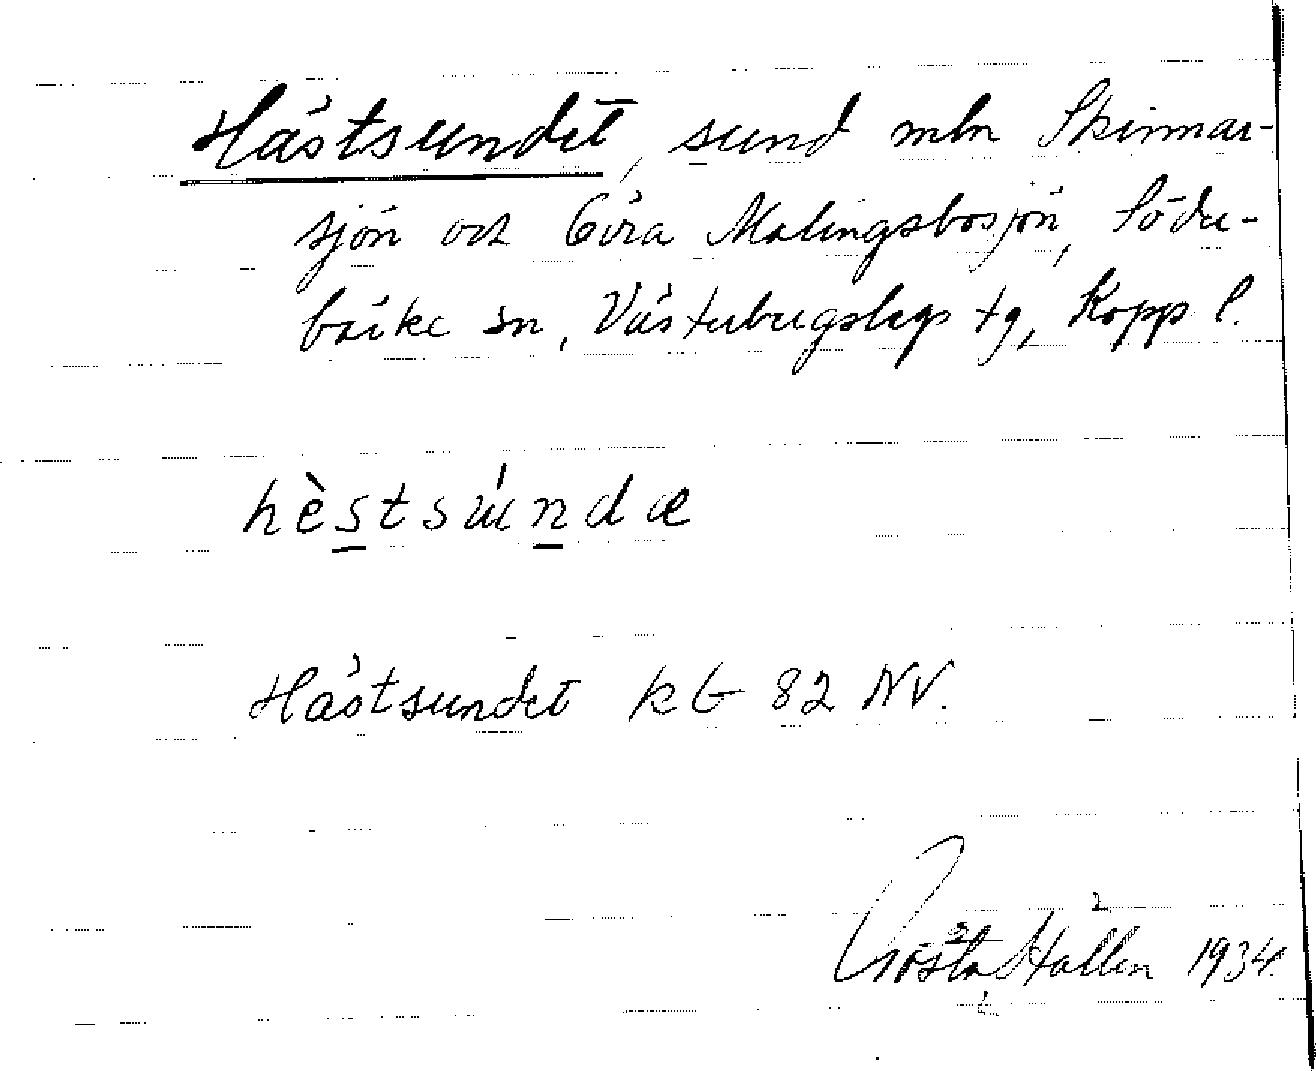 Hästsundet, sund mln Skinnar-
sjön och Övra Malingsbosjön, Söder-
bärke sn, Västerbergslags tg, Kopp l.
hèstsúndæ
Hästsundet kG 82 NV.
Gösta Hallén 1934.